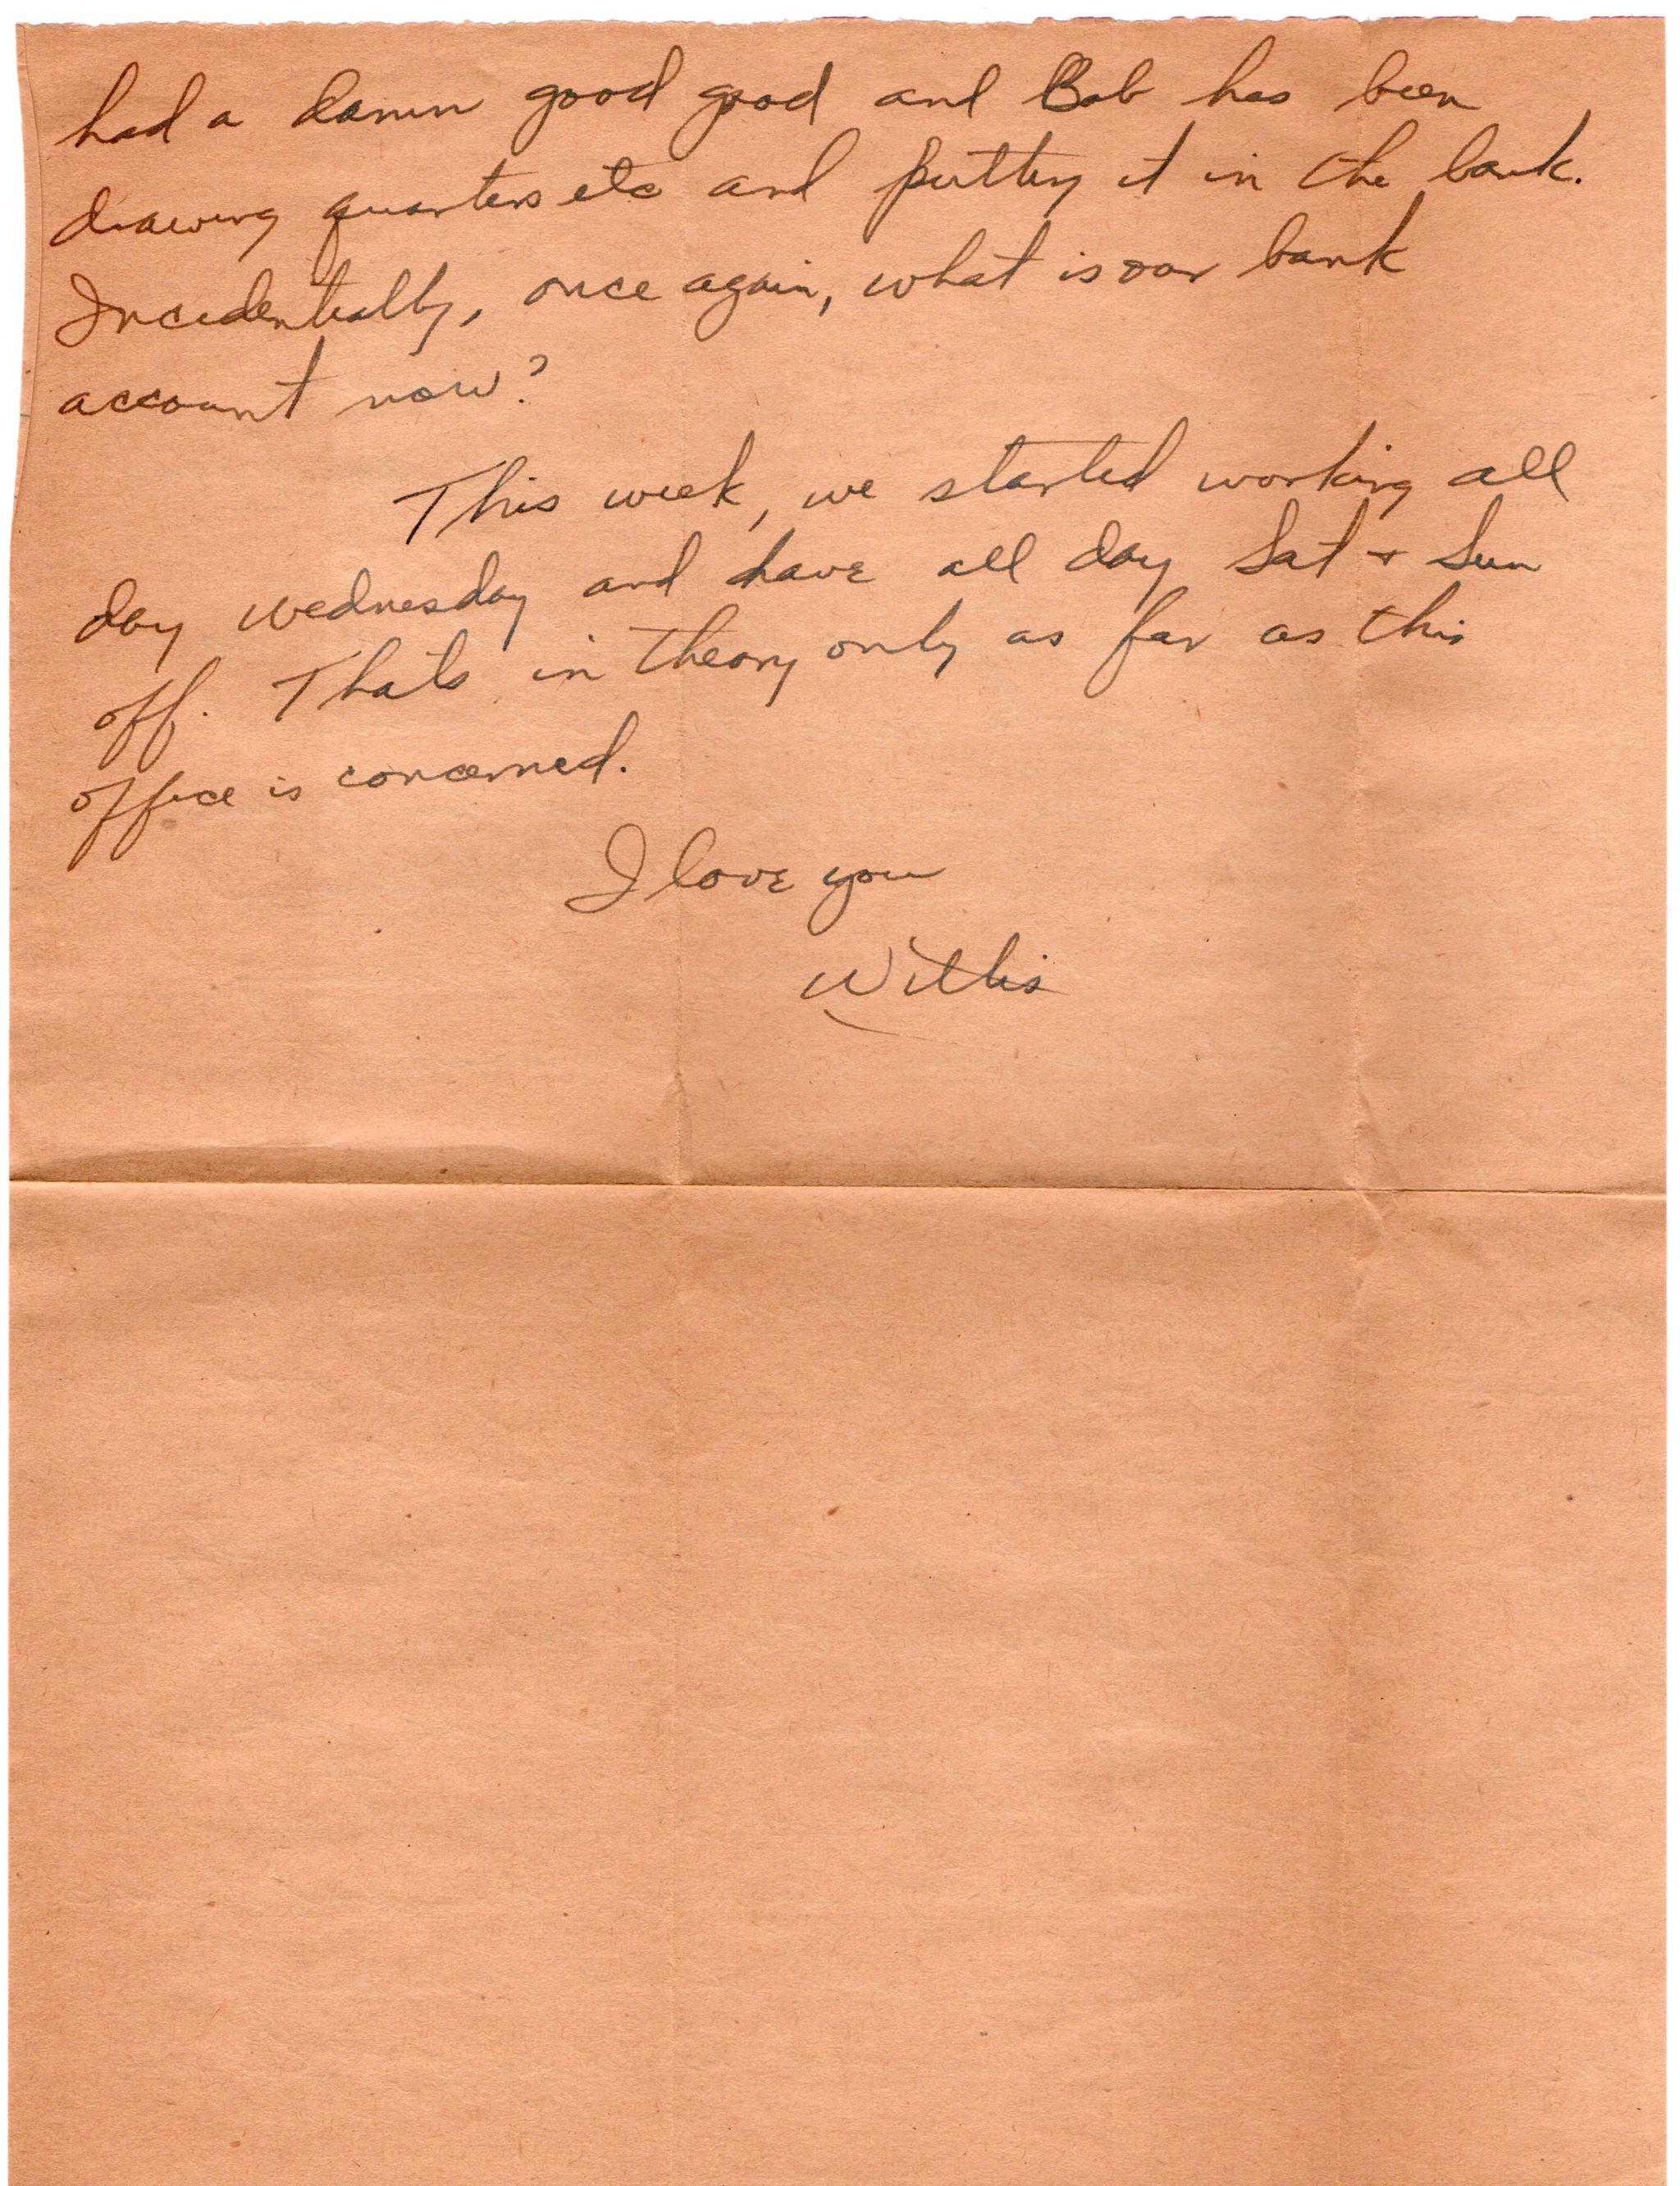 had a damn good good and Bob has been
drawing quarters etc and putting it in the bank.
Incidentially, once again, what is our bank
account now?
This week, we started working all
day wednesday and have all day Sat + Sun
off. Thats in theory only as far as this
office is concerned.
I love you
Willis